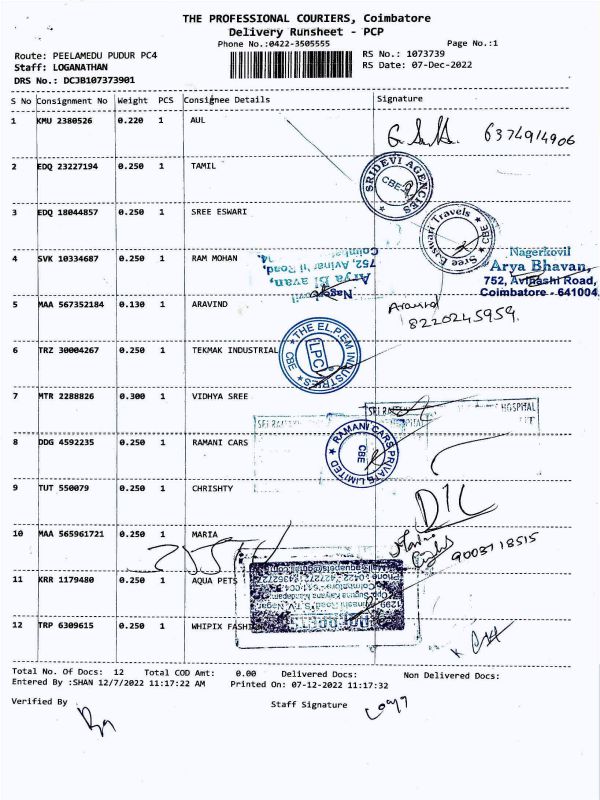 THE PROFESSIONAL COURIERS, Coimbatore
Delivery Runsheet - PCP
Phone No.:0422-3505555 Page No.:1
Route: PEELAMEDU PUDUR PC4 RS No.: 1073739
Staff: LOGANATHAN RS Date: 07-Dec-2022
DRS No.: DCJB107373901
S No Consignment No Weight PCS Consignee Details Signature
1 KMU 2380526 0.220 1 AUL
6374914906
2 EDQ 23227194 0.250 1 TAMIL
SRIDEVI AGENCIES CBE-4
3 EDQ 18044857 0.250 1 SREE ESWARI
Sree Eswari Travels CBE
4 SVK 10334687 0.250 1 RAM MOHAN
Nagerkovil
Arya Bhavan,
752, Avinashi Road,
Coimbatore - 641004.
5 MAA 567352184 0.130 1 ARAVIND
Aravind
8220245959.
6 TRZ 30004267 0.250 1 TEKMAK INDUSTRIAL
THE EL.P.EM INDUSTRIES CBE
LPC
7 MTR 2288826 0.300 1 VIDHYA SREE
HOSPITAL
8 DDG 4592235 0.250 1 RAMANI CARS
RAMANI CARS PRIVATE LIMITED CBE
9 TUT 550079 0.250 1 CHRISHTY
10 MAA 565961721 0.250 1 MARIA
9003718515
11 KRR 1179480 0.250 1 AQUA PETS
12 TRP 6309615 0.250 1 WHIPIX FASHION
Total No. Of Docs: 12 Total COD Amt: 0.00 Delivered Docs: Non Delivered Docs:
Entered By :SHAN 12/7/2022 11:17:22 AM Printed On: 07-12-2022 11:17:32
Verified By Staff Signature